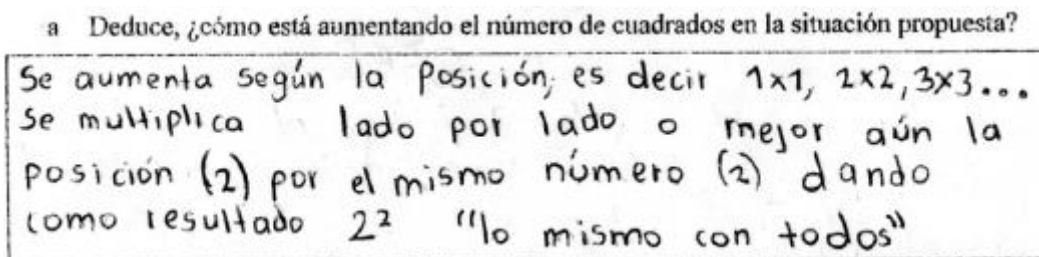 a Deduce, ¿cómo está aumentando el número de cuadrados en la situación propuesta?
Se aumenta según la Posición, es decir 1x1, 2x2, 3x3...
Se multiplica lado por lado o mejor aún la
posición (2) por el mismo número (2) dando
como resultado 2² "lo mismo con todos"